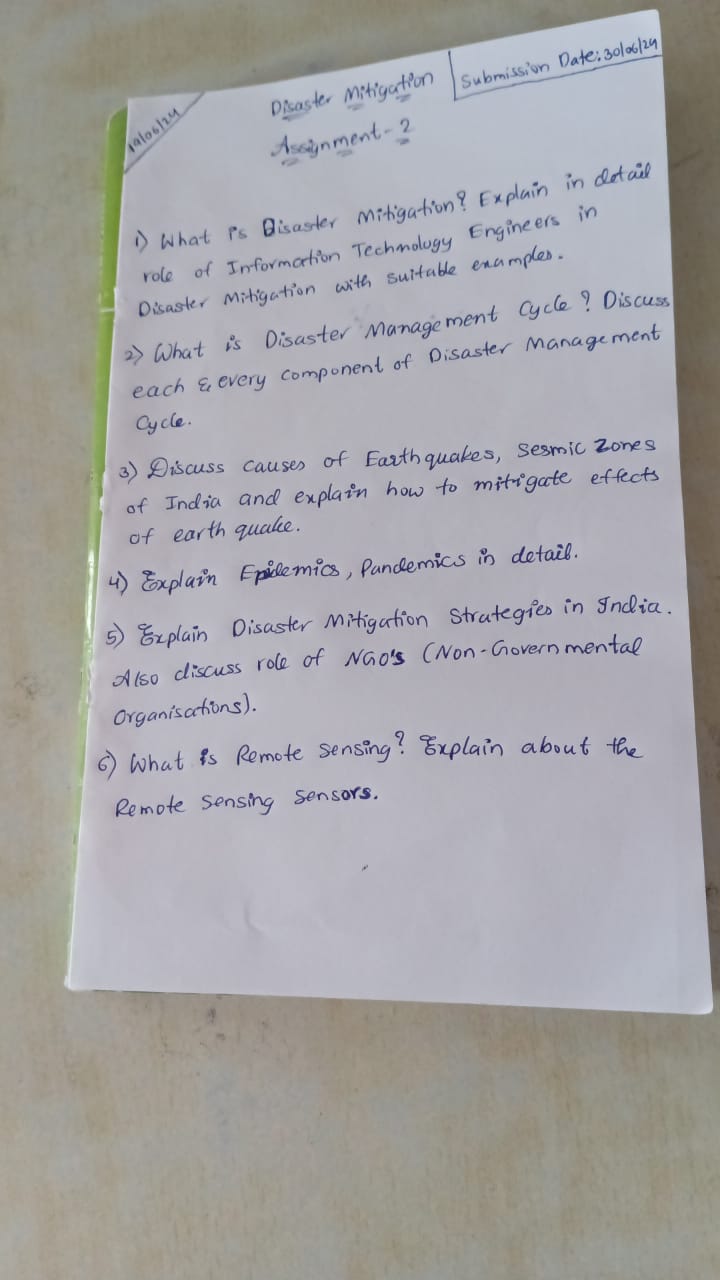 19/06/24
Disaster Mitigation
Submission Date: 30/06/24
Assignment - 2
1) What is Disaster Mitigation? Explain in detail
role of Information Technology Engineers in
Disaster Mitigation with suitable examples.
2) What is Disaster Management Cycle? Discuss
each & every component of Disaster Management
Cycle.
3) Discuss causes of Earthquakes, Sesmic Zones
of India and explain how to mitigate effects
of earth quake.
4) Explain Epidemics, Pandemics in detail.
5) Explain Disaster Mitigation Strategies in India.
Also discuss role of NGO's (Non-Governmental
Organisations).
6) What is Remote Sensing? Explain about the
Remote Sensing Sensors.